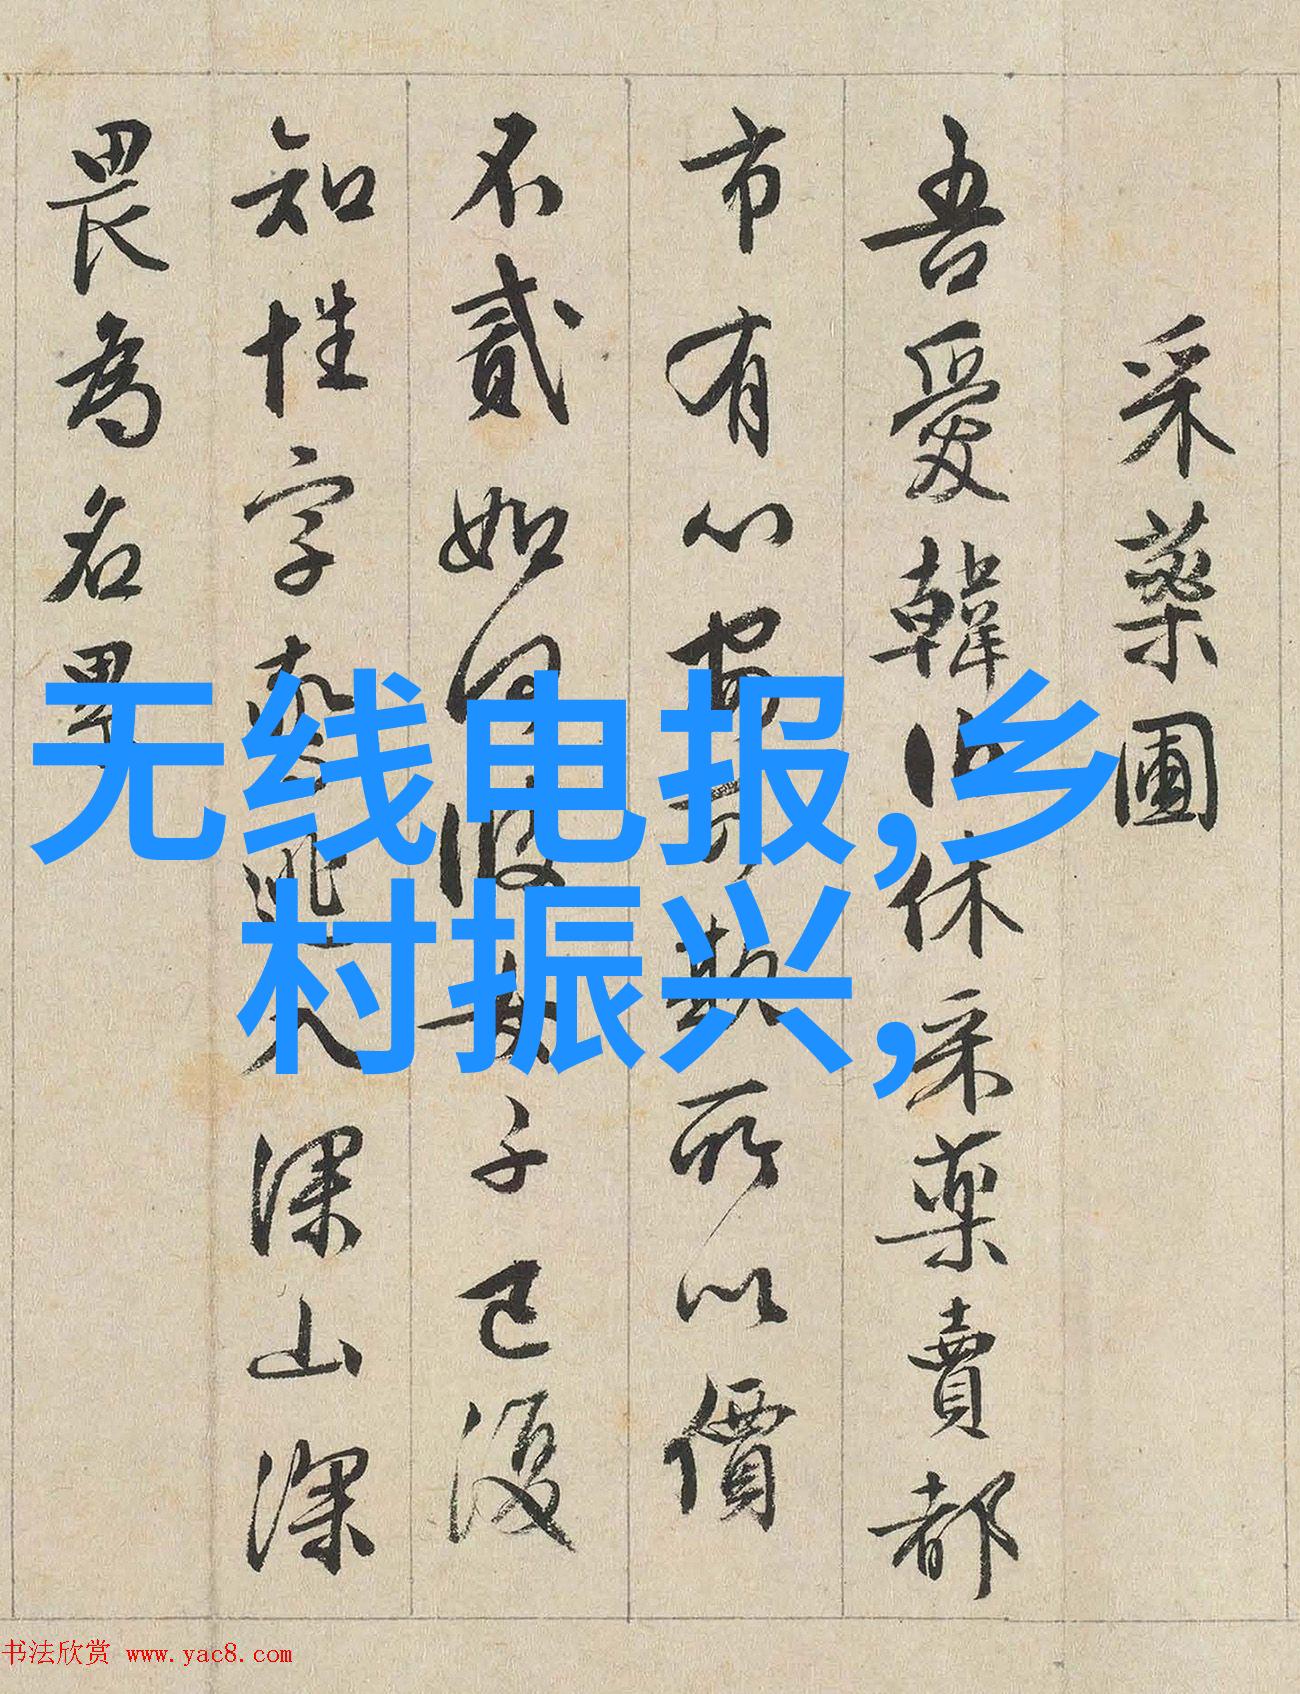 采藥圃
吾愛韓伯休采藥賣都
市有心寧可欺所以價
不貳如何彼女子已復
知性字驚逃入深山深
畏為名累
无线电报,乡
村振兴,
书法欣赏 www.yac8.com